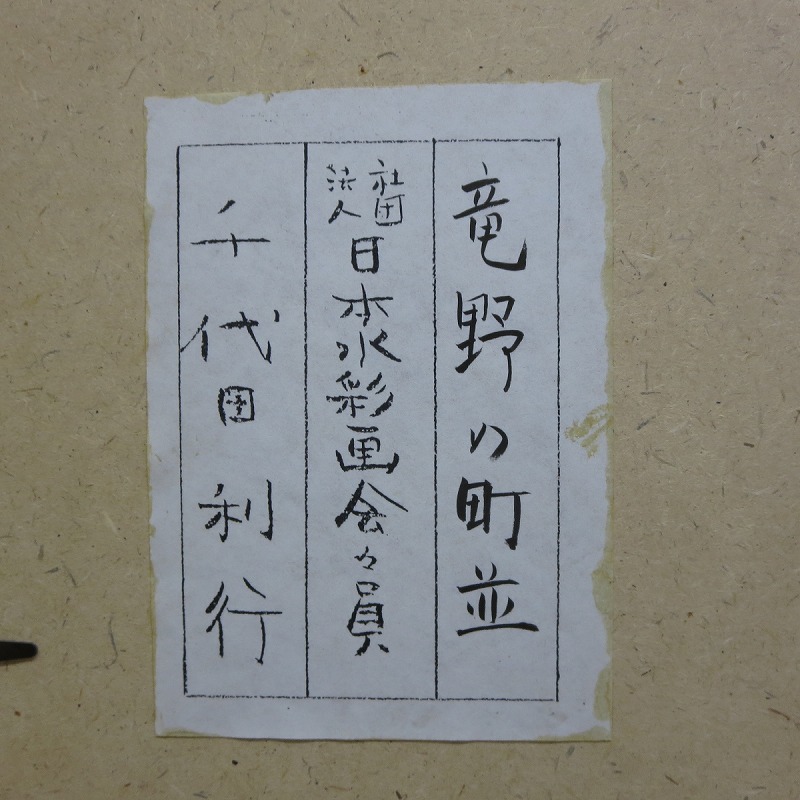 竜野の町並
社団法人日本水彩画会々員
千代田利行